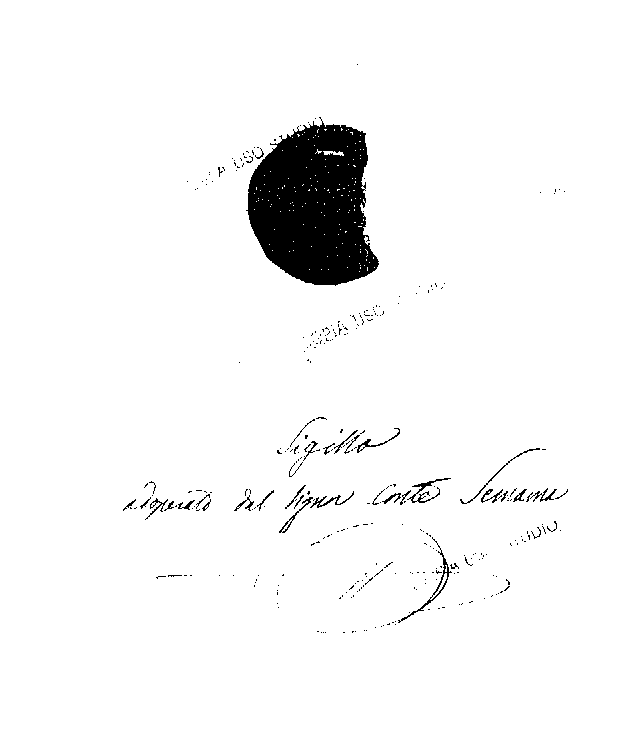 A USO STUDIO
COPIA USO
Sigillo
adoperato dal Signor Conte Semama
USO STUDIO